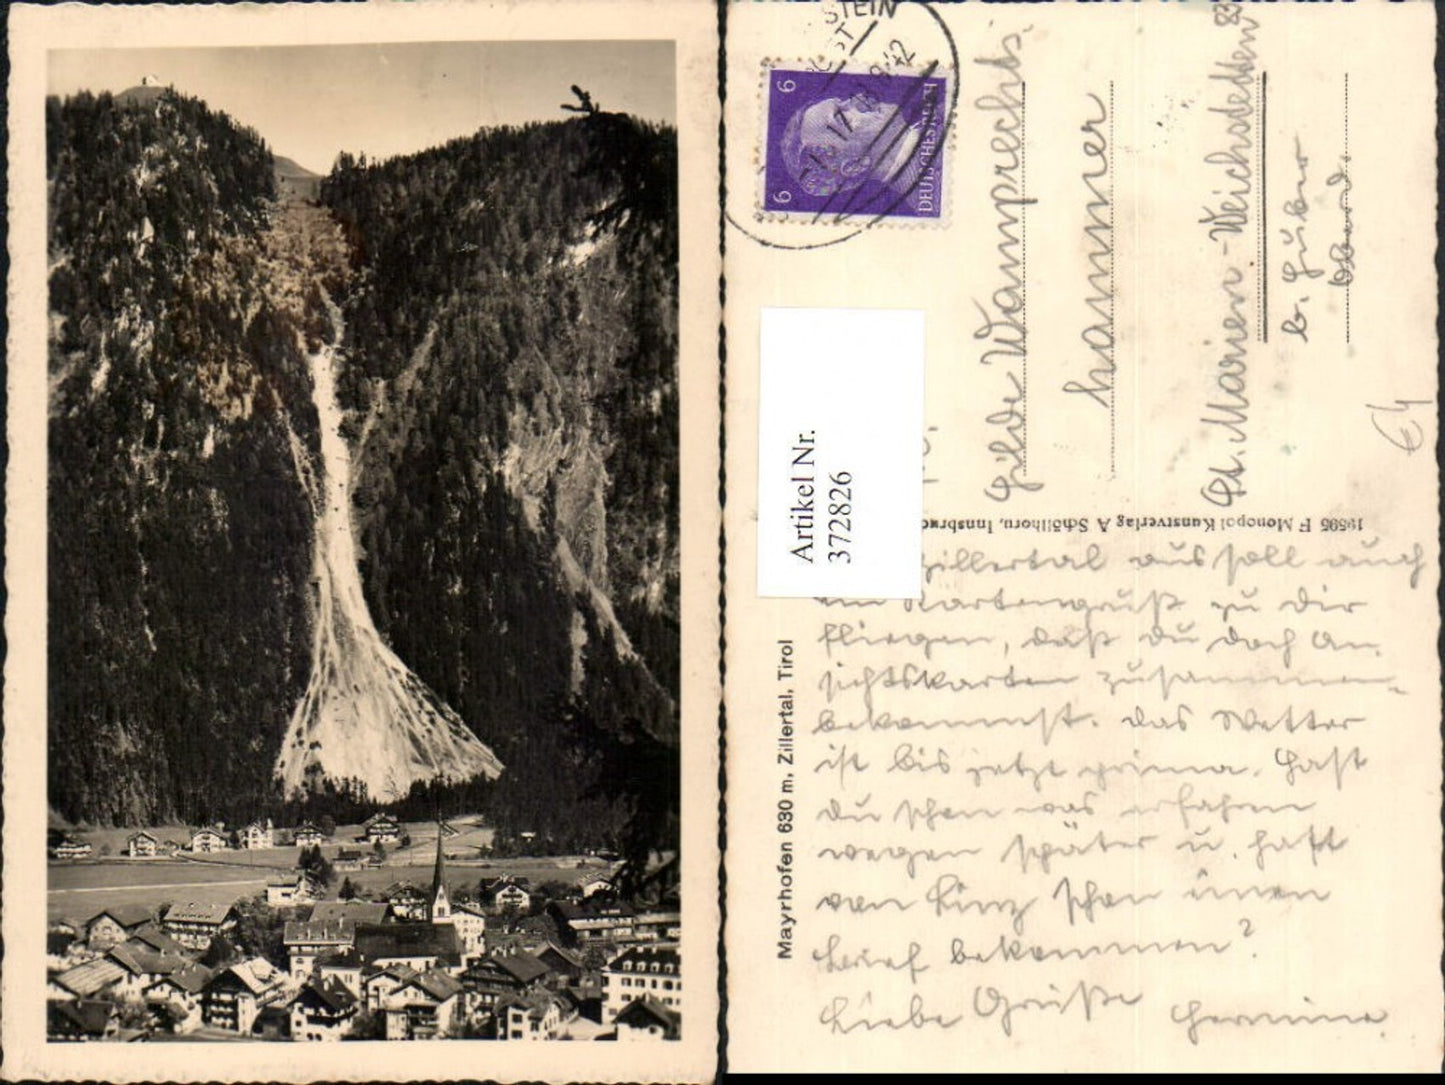 STEIN
6
6
DEUTSCHES REICH
Artikel Nr.
372826
Hilde Wamprechts-
hammer
St. Marien-Weichstetten 83
b. Huber
Oberd.
19595 F Monopol Kunstverlag A Schöllhorn, Innsbruck
Mayrhofen 630 m, Zillertal, Tirol
Zillertal aus soll auch
ein Kartengruß zu Dir
fliegen, daß Du doch An-
sichtskarten zusammen-
bekommst. Das Wetter
ist bis jetzt prima. Hast
Du schon was erfahren
wegen später u. hast
von Linz schon einen
Brief bekommen?
Liebe Grüße Hermine.